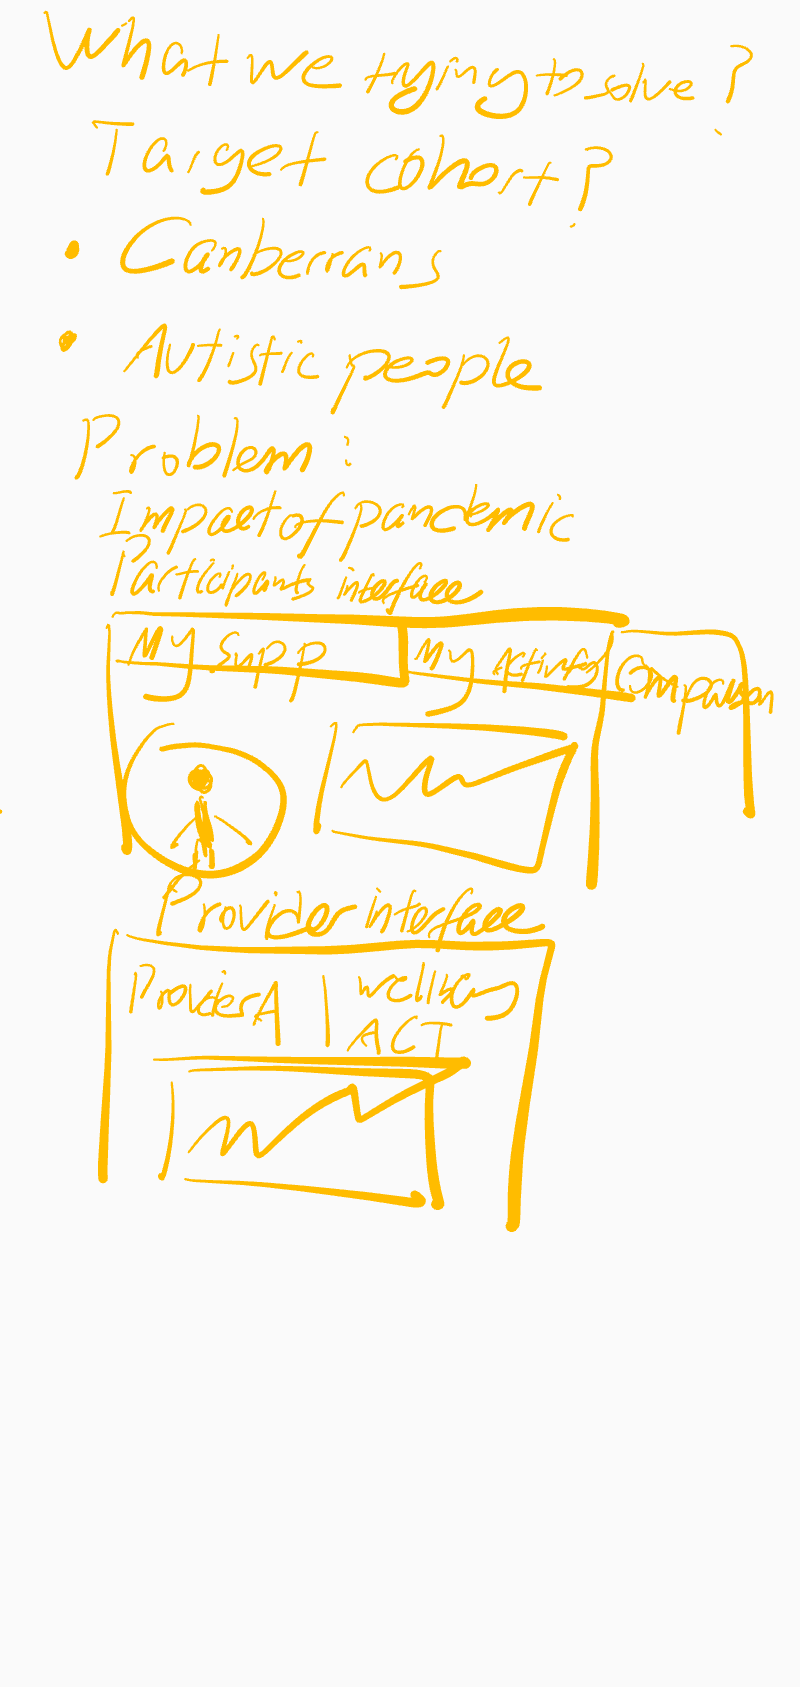 What we trying to solve?
Target cohort?
• Canberrans
• Autistic people
Problem:
Impact of pandemic
Participants interface
My Supp My Activities Comparison
Provider interface
Provider A | Wellbeing
ACT